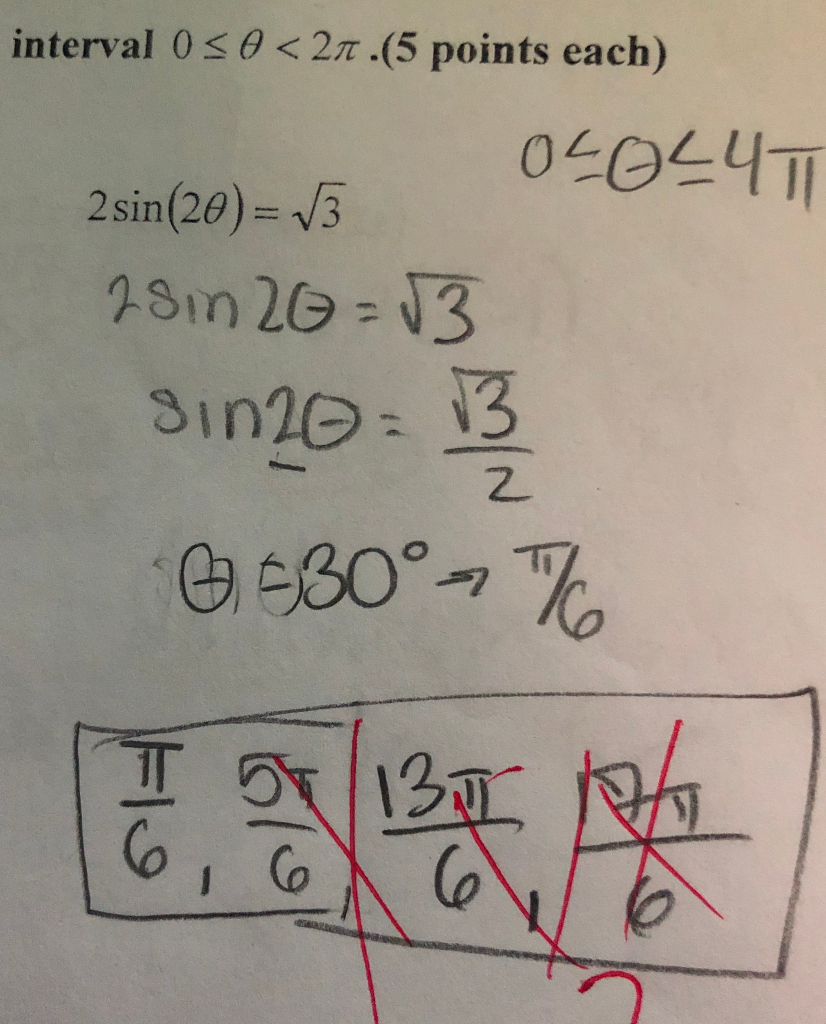 interval 0 ≤ θ < 2π .(5 points each)
0≤θ≤4π
2sin(2θ) = √3
2sin 2θ = √3
sin2θ = √3/2
θ = 30° → π/6
π/6, 5π/6, 13π/6, 17π/6